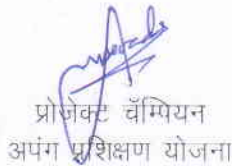 प्रोजेक्ट चॅम्पियन
अपंग प्रशिक्षण योजना